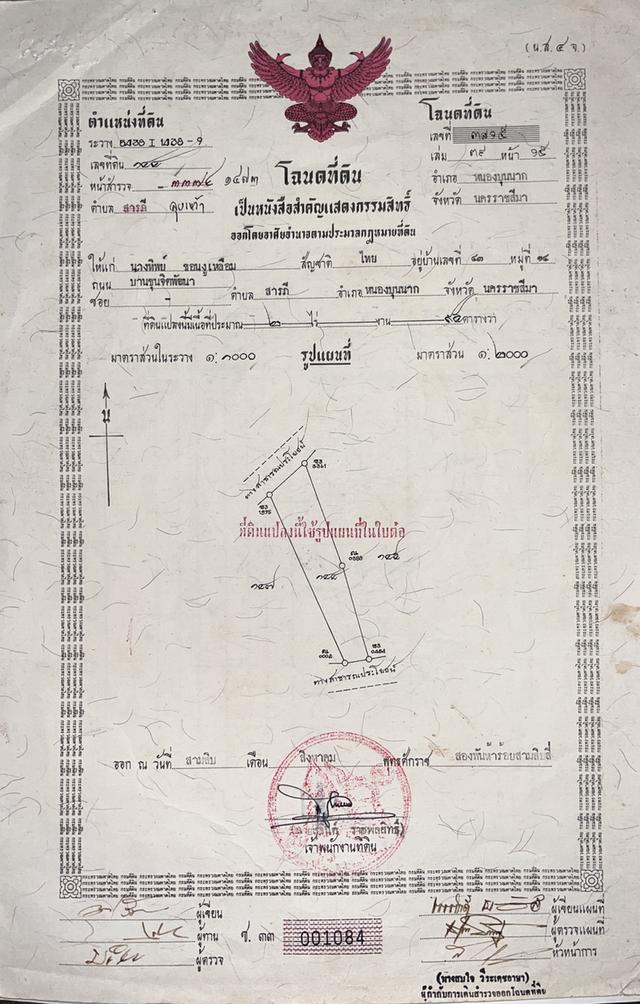 (น.ส. ๔ จ.)
ตำแหน่งที่ดิน
ระวาง
เลขที่ดิน
หน้าสำรวจ ๑๔๗๓
ตำบล สารภี
โฉนดที่ดิน
เลขที่ ๓๘๑๕
เล่ม ๓๙ หน้า ๑๕
อำเภอ หนองบุนนาก
จังหวัด นครราชสีมา
โฉนดที่ดิน
เป็นหนังสือสำคัญแสดงกรรมสิทธิ์
ออกโดยอาศัยอำนาจตามประมวลกฎหมายที่ดิน
ให้แก่ นางทิพย์ ชอนงูเหลือม สัญชาติ ไทย อยู่บ้านเลขที่ ๔๓ หมู่ที่ ๑๔
ถนน บ้านขุนจิตพัฒนา
ซอย - ตำบล สารภี อำเภอ หนองบุนนาก จังหวัด นครราชสีมา
ที่ดินแปลงนี้มีเนื้อที่ประมาณ ๒ ไร่ - งาน ๙๔ ตารางวา
มาตราส่วนในระวาง ๑: ๑๐๐๐ รูปแผนที่ มาตราส่วน ๑: ๒๐๐๐
น
ทางสาธารณประโยชน์
ที่ดินแปลงนี้ใช้รูปแผนที่ในใบต่อ
ทางสาธารณประโยชน์
ออก ณ วันที่ สามสิบ เดือน สิงหาคม พุทธศักราช สองพันห้าร้อยสามสิบสี่
เจ้าพนักงานที่ดิน
ผู้เขียน
ผู้ทาน
ผู้ตรวจ
ซ. ๓๓ 001084
ผู้เขียนแผนที่
ผู้ตรวจแผนที่
หัวหน้าการ
(นายสมใจ วีระเดชอามา)
ผู้กำกับการเดินสำรวจออกโฉนดที่ดิน